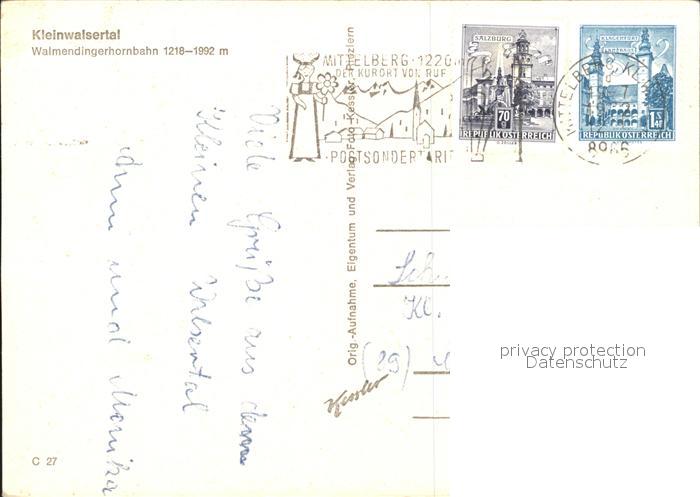 Kleinwalsertal
Walmendingerhornbahn 1218—1992 m
MITTELBERG · 1220
DER KURORT VON RUF
· POSTSONDERTARIF
SALZBURG
70
REPUBLIK ÖSTERREICH
KLAGENFURT
LANDHAUS
1.S
REPUBLIK ÖSTERREICH
MITTELBERG
8986
Viele Grüße aus dem
Kleinen Walsertal
und Monika
Orig.-Aufnahme, Eigentum und Verlag Foto Kessler, Riezlern
Kessler
Sch
Kl.
(29)
privacy protection
Datenschutz
C 27